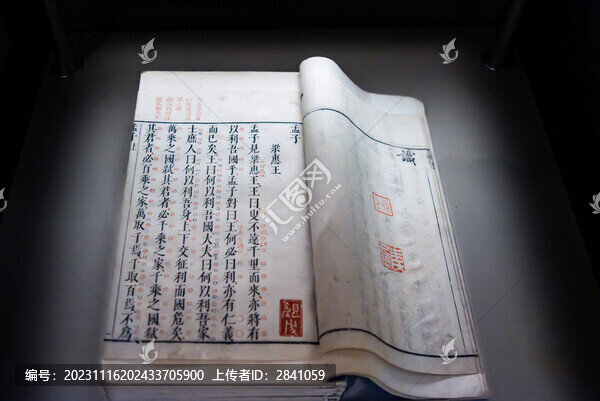 識
孟子
梁惠王
孟子見梁惠王王曰叟不遠千里而來亦將有
以利吾國乎孟子對曰王何必曰利亦有仁義
而已矣王曰何以利吾國大夫曰何以利吾家
士庶人曰何以利吾身上下交征利而國危矣
萬乘之國弒其君者必千乘之家千乘之國弒
其君者必百乘之家萬取千焉千取百焉不為
孟子上
汇图网
www.huitu.com
编号:20231116202433705900 上传者ID:2841059